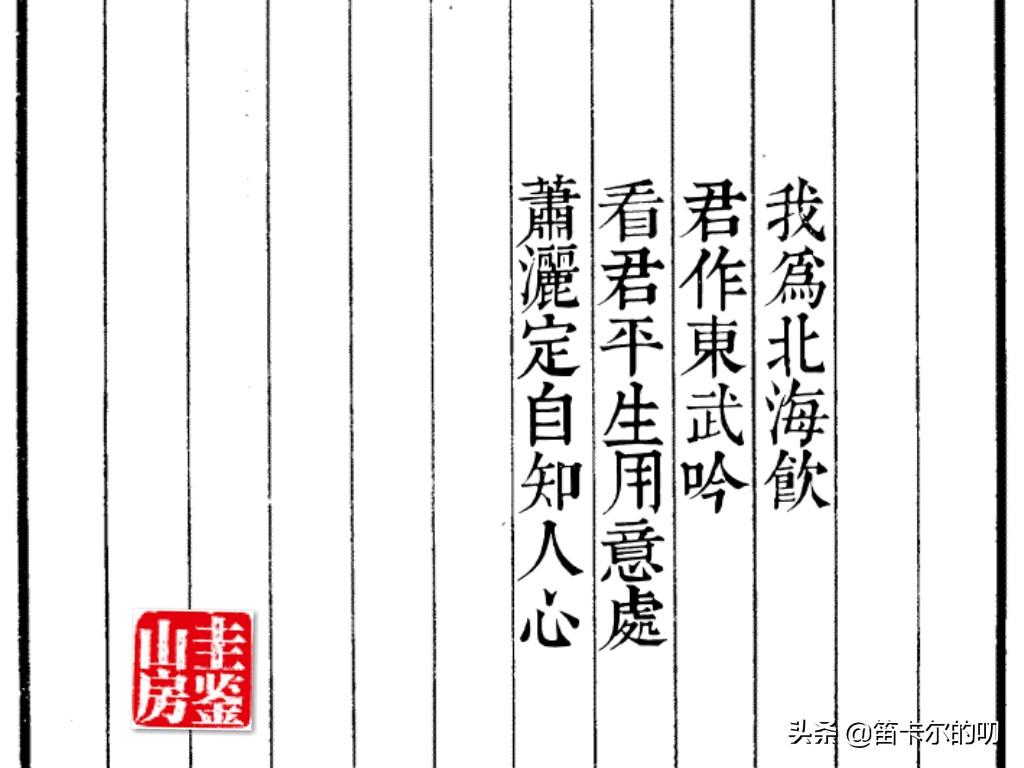 我爲北海飲
君作東武吟
看君平生用意處
蕭灑定自知人心
圭鉴
山房
头条 @笛卡尔的叨